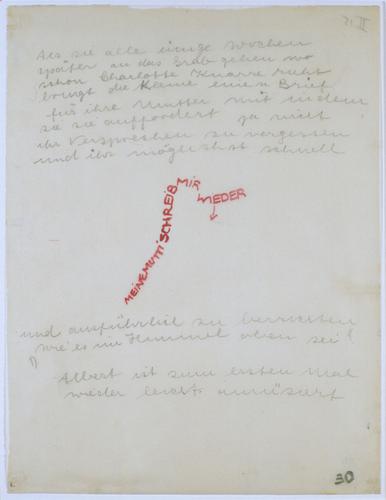 Als sie alle einige Wochen
später an das Grab gehen wo
schon Charlotte Knarre ruht
bringt die Kleine einen Brief
für ihre Mutter mit indem
sie sie auffordert ja nicht
ihr Versprechen zu vergessen
und ihr möglichst schnell
MEINE MUTTI SCHREIB MIR WIEDER
und ausführlich zu berichten
wie es im Himmel oben sei!
Albert ist zum ersten Mal
wieder leicht amüsiert
30